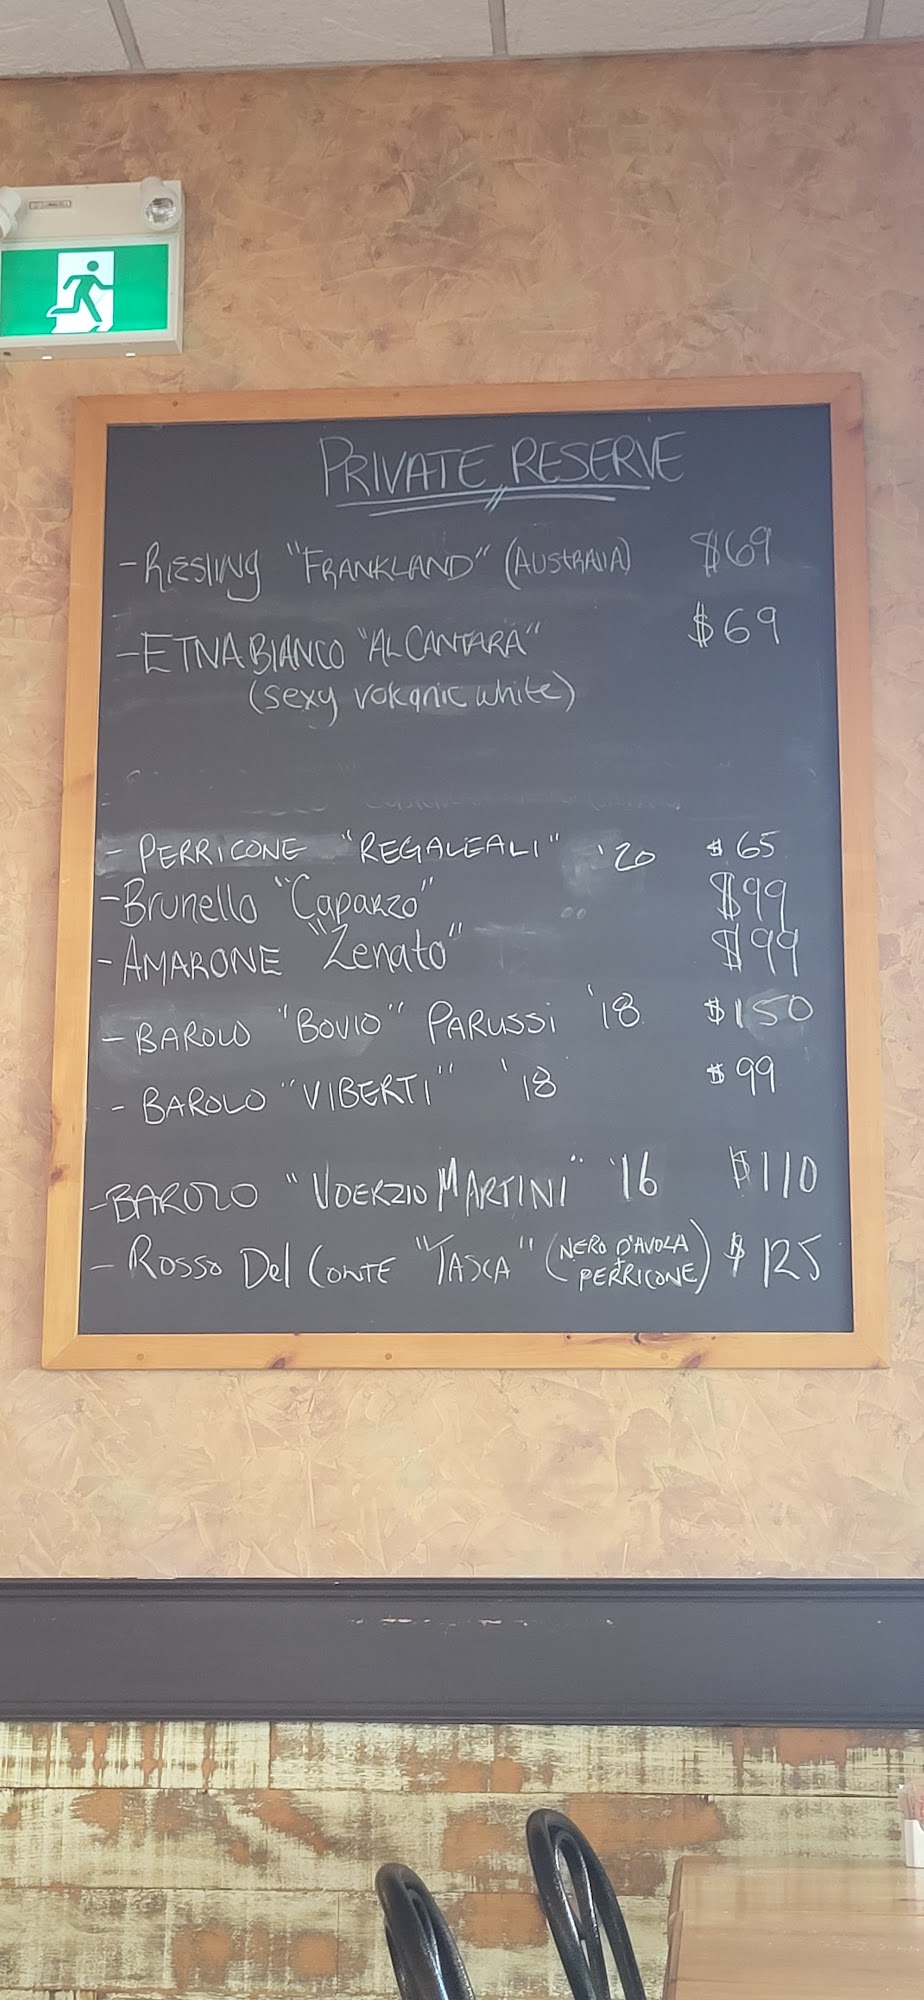 PRIVATE RESERVE
- RIESLING "FRANKLAND" (AUSTRALIA) $69
- ETNA BIANCO "ALCANTARA" $69
(sexy volcanic white)
- PERRICONE "REGALEALI" '20 $65
- Brunello "Caparzo" $99
- AMARONE "Zenato" $99
- BAROLO "BOVIO" PARUSSI '18 $150
- BAROLO "VIBERTI" '18 $99
- BAROLO "VOERZIO MARTINI" '16 $110
- ROSSO Del CONTE "TASCA" (NERO D'AVOLA + PERRICONE) $125